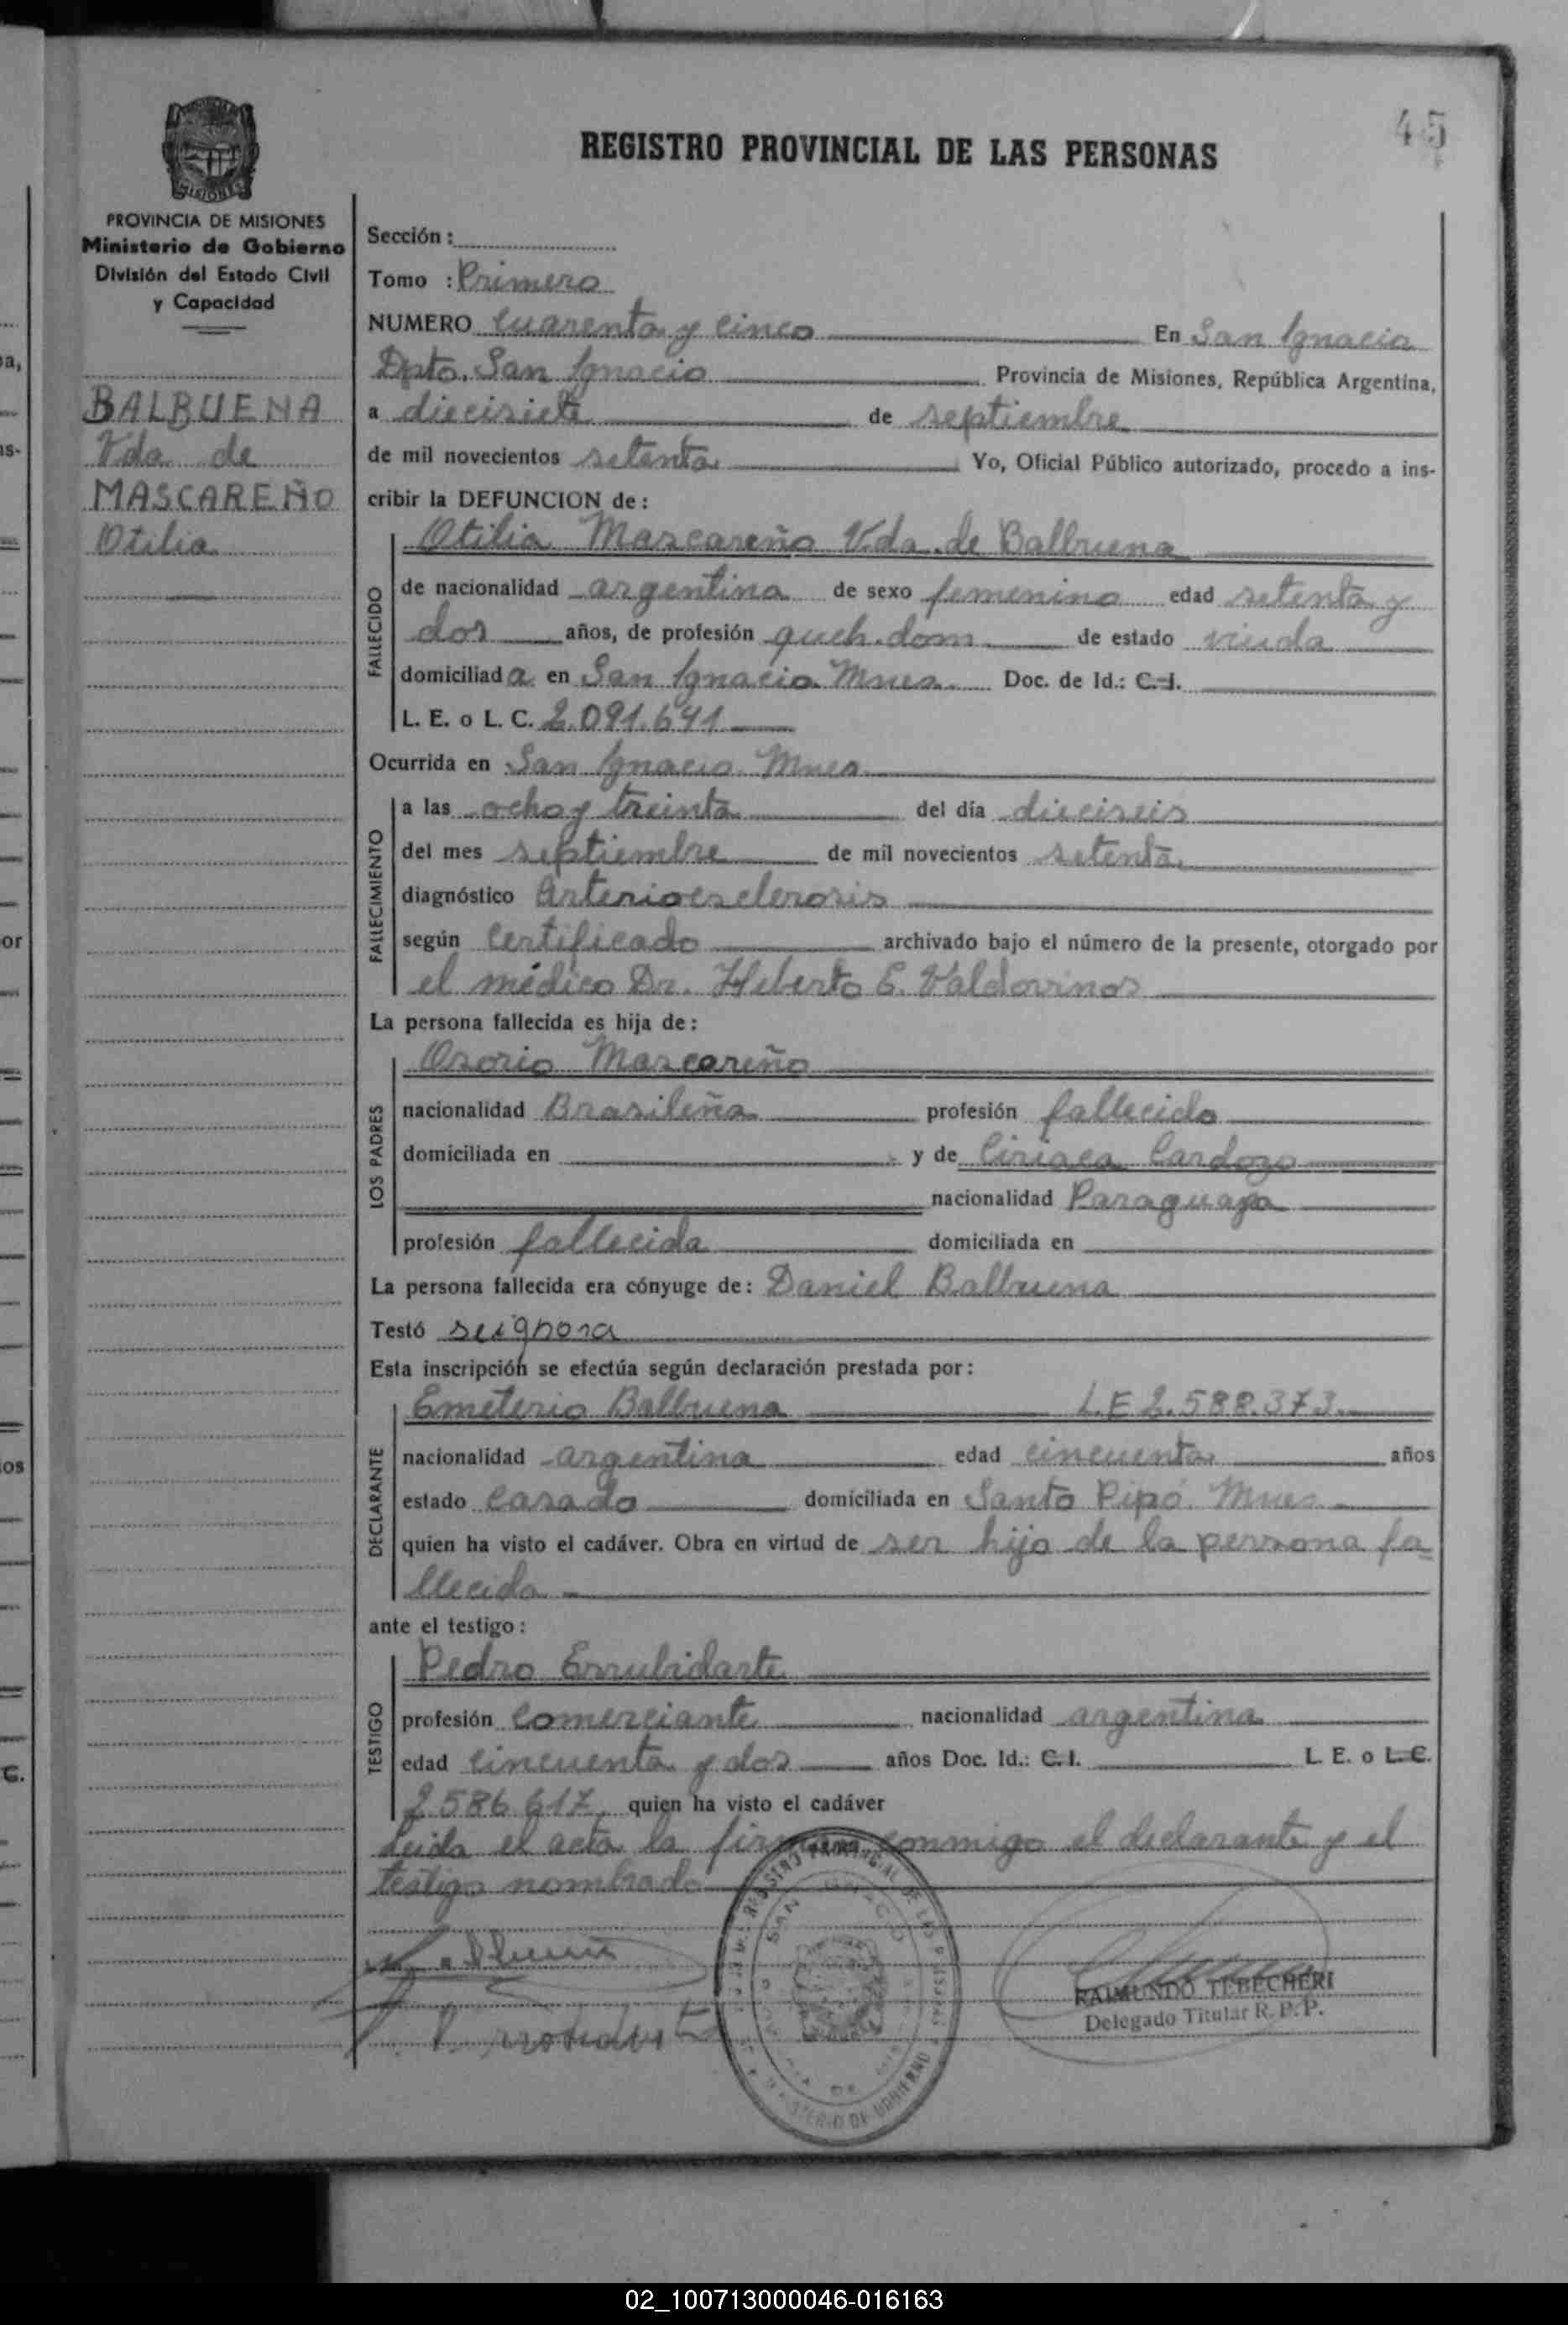 45
REGISTRO PROVINCIAL DE LAS PERSONAS
MISIONES
PROVINCIA DE MISIONES
Ministerio de Gobierno
División del Estado Civil
y Capacidad
BALBUENA
Vda de
MASCAREÑO
Otilia
Sección :
Tomo : Primero
NUMERO cuarenta y cinco En San Ignacio
Dpto. San Ignacio Provincia de Misiones, República Argentina,
a diecisiete de septiembre
de mil novecientos setenta Yo, Oficial Público autorizado, procedo a ins-
cribir la DEFUNCION de :
Otilia Mascareño Vda. de Balbuena
FALLECIDO
de nacionalidad argentina de sexo femenino edad setenta y
dos años, de profesión queh. dom. de estado viuda
domiciliada en San Ignacio Mnes. Doc. de Id.: C. I.
L. E. o L. C. 2.091.641
Ocurrida en San Ignacio Mnes
FALLECIMIENTO
a las ocho y treinta del día dieciseis
del mes septiembre de mil novecientos setenta
diagnóstico Arterioesclerosis
según Certificado archivado bajo el número de la presente, otorgado por
el médico Dr. Heberto E. Valdovinos
La persona fallecida es hija de :
LOS PADRES
Osorio Mascareño
nacionalidad Brasileña profesión fallecido
domiciliada en y de Ciriaca Cardozo
nacionalidad Paraguaya
profesión fallecida domiciliada en
La persona fallecida era cónyuge de : Daniel Balbuena
Testó se ignora
Esta inscripción se efectúa según declaración prestada por :
DECLARANTE
Emeterio Balbuena L.E 2.588.373.
nacionalidad argentina edad cincuenta años
estado casado domiciliada en Santo Pipó Mnes
quien ha visto el cadáver. Obra en virtud de ser hijo de la persona fa-
llecida
ante el testigo :
TESTIGO
Pedro Errubidarte
profesión comerciante nacionalidad argentina
edad cincuenta y dos años Doc. Id.: C. I. L. E. o L. C.
2.586.617, quien ha visto el cadáver
Leida el acta la firman conmigo el declarante y el
testigo nombrado
RAIMUNDO TEBECHERI
Delegado Titular R. P. P.
02_100713000046-016163